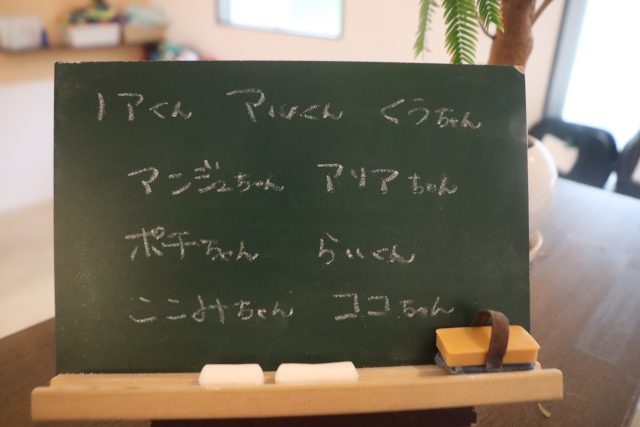 ノアくん アルくん くうちゃん
マンジュちゃん アリアちゃん
ポチちゃん らいくん
ここみちゃん ココちゃん